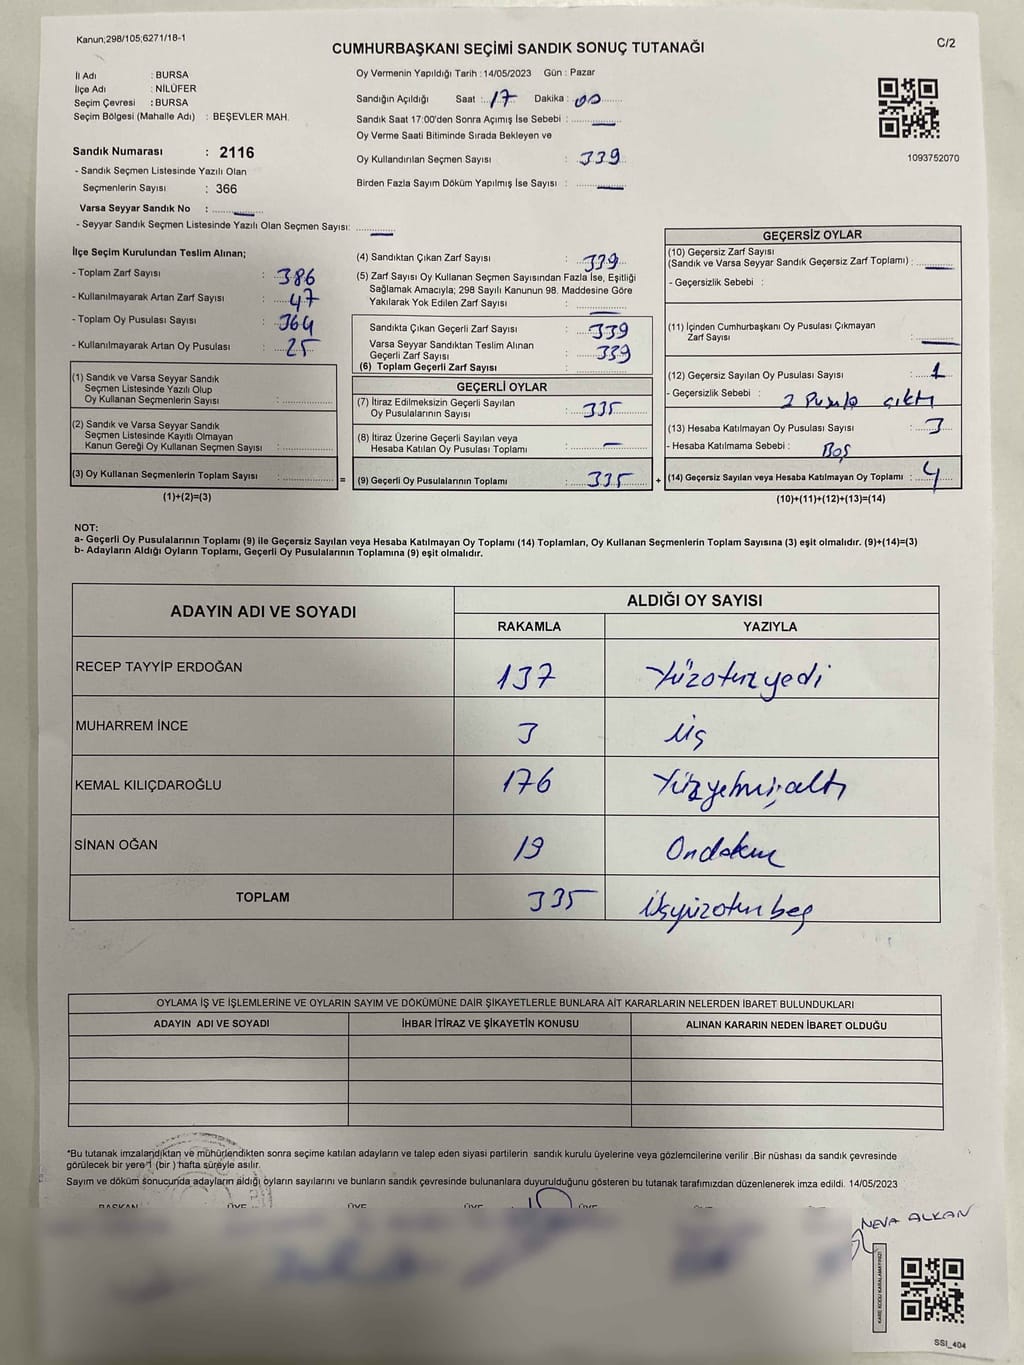 Kanun;298/105;6271/18-1
C/2
CUMHURBAŞKANI SEÇİMİ SANDIK SONUÇ TUTANAĞI
İl Adı : BURSA
İlçe Adı : NİLÜFER
Seçim Çevresi : BURSA
Seçim Bölgesi (Mahalle Adı) : BEŞEVLER MAH.
Sandık Numarası : 2116
- Sandık Seçmen Listesinde Yazılı Olan
Seçmenlerin Sayısı : 366
Varsa Seyyar Sandık No :
- Seyyar Sandık Seçmen Listesinde Yazılı Olan Seçmen Sayısı:
Oy Vermenin Yapıldığı Tarih :14/05/2023 Gün : Pazar
Sandığın Açıldığı Saat : 17 Dakika : 00
Sandık Saat 17:00'den Sonra Açımış İse Sebebi :
Oy Verme Saati Bitiminde Sırada Bekleyen ve
Oy Kullandırılan Seçmen Sayısı : 339
Birden Fazla Sayım Döküm Yapılmış İse Sayısı :
1093752070
İlçe Seçim Kurulundan Teslim Alınan;
- Toplam Zarf Sayısı : 386
- Kullanılmayarak Artan Zarf Sayısı : 47
- Toplam Oy Pusulası Sayısı : 364
- Kullanılmayarak Artan Oy Pusulası : 25
(1) Sandık ve Varsa Seyyar Sandık
Seçmen Listesinde Yazılı Olup
Oy Kullanan Seçmenlerin Sayısı :
(2) Sandık ve Varsa Seyyar Sandık
Seçmen Listesinde Kayıtlı Olmayan
Kanun Gereği Oy Kullanan Seçmen Sayısı :
(3) Oy Kullanan Seçmenlerin Toplam Sayısı :
(1)+(2)=(3)
(4) Sandıktan Çıkan Zarf Sayısı : 339
(5) Zarf Sayısı Oy Kullanan Seçmen Sayısından Fazla İse, Eşitliği
Sağlamak Amacıyla; 298 Sayılı Kanunun 98. Maddesine Göre
Yakılarak Yok Edilen Zarf Sayısı :
Sandıkta Çıkan Geçerli Zarf Sayısı : 339
Varsa Seyyar Sandıktan Teslim Alınan
Geçerli Zarf Sayısı : 339
(6) Toplam Geçerli Zarf Sayısı :
GEÇERLİ OYLAR
(7) İtiraz Edilmeksizin Geçerli Sayılan
Oy Pusulalarının Sayısı : 335
(8) İtiraz Üzerine Geçerli Sayılan veya
Hesaba Katılan Oy Pusulası Toplamı :
= (9) Geçerli Oy Pusulalarının Toplamı : 335
GEÇERSİZ OYLAR
(10) Geçersiz Zarf Sayısı
(Sandık ve Varsa Seyyar Sandık Geçersiz Zarf Toplamı) :
- Geçersizlik Sebebi :
(11) İçinden Cumhurbaşkanı Oy Pusulası Çıkmayan
Zarf Sayısı :
(12) Geçersiz Sayılan Oy Pusulası Sayısı : 1
- Geçersizlik Sebebi : 2 Pusula çıktı
(13) Hesaba Katılmayan Oy Pusulası Sayısı : 3
- Hesaba Katılmama Sebebi : Boş
+ (14) Geçersiz Sayılan veya Hesaba Katılmayan Oy Toplamı : 4
(10)+(11)+(12)+(13)=(14)
NOT:
a- Geçerli Oy Pusulalarının Toplamı (9) ile Geçersiz Sayılan veya Hesaba Katılmayan Oy Toplamı (14) Toplamları, Oy Kullanan Seçmenlerin Toplam Sayısına (3) eşit olmalıdır. (9)+(14)=(3)
b- Adayların Aldığı Oyların Toplamı, Geçerli Oy Pusulalarının Toplamına (9) eşit olmalıdır.
ADAYIN ADI VE SOYADI
ALDIĞI OY SAYISI
RAKAMLA YAZIYLA
RECEP TAYYİP ERDOĞAN 137 Yüzotuzyedi
MUHARREM İNCE 3 üç
KEMAL KILIÇDAROĞLU 176 Yüzyetmişaltı
SİNAN OĞAN 19 Ondokuz
TOPLAM 335 üçyüzotuzbeş
OYLAMA İŞ VE İŞLEMLERİNE VE OYLARIN SAYIM VE DÖKÜMÜNE DAİR ŞİKAYETLERLE BUNLARA AİT KARARLARIN NELERDEN İBARET BULUNDUKLARI
ADAYIN ADI VE SOYADI İHBAR İTİRAZ VE ŞİKAYETİN KONUSU ALINAN KARARIN NEDEN İBARET OLDUĞU
*Bu tutanak imzalandıktan ve mühürlendikten sonra seçime katılan adayların ve talep eden siyasi partilerin sandık kurulu üyelerine veya gözlemcilerine verilir .Bir nüshası da sandık çevresinde
görülecek bir yere 1 (bir ) hafta süreyle asılır.
Sayım ve döküm sonucunda adayların aldığı oyların sayılarını ve bunların sandık çevresinde bulunanlara duyurulduğunu gösteren bu tutanak tarafımızdan düzenlenerek imza edildi. 14/05/2023
BAŞKAN ÜYE ÜYE ÜYE ÜYE
NEVA ALKAN
KARE KODU KARALAMAYINIZ!
SSI_404